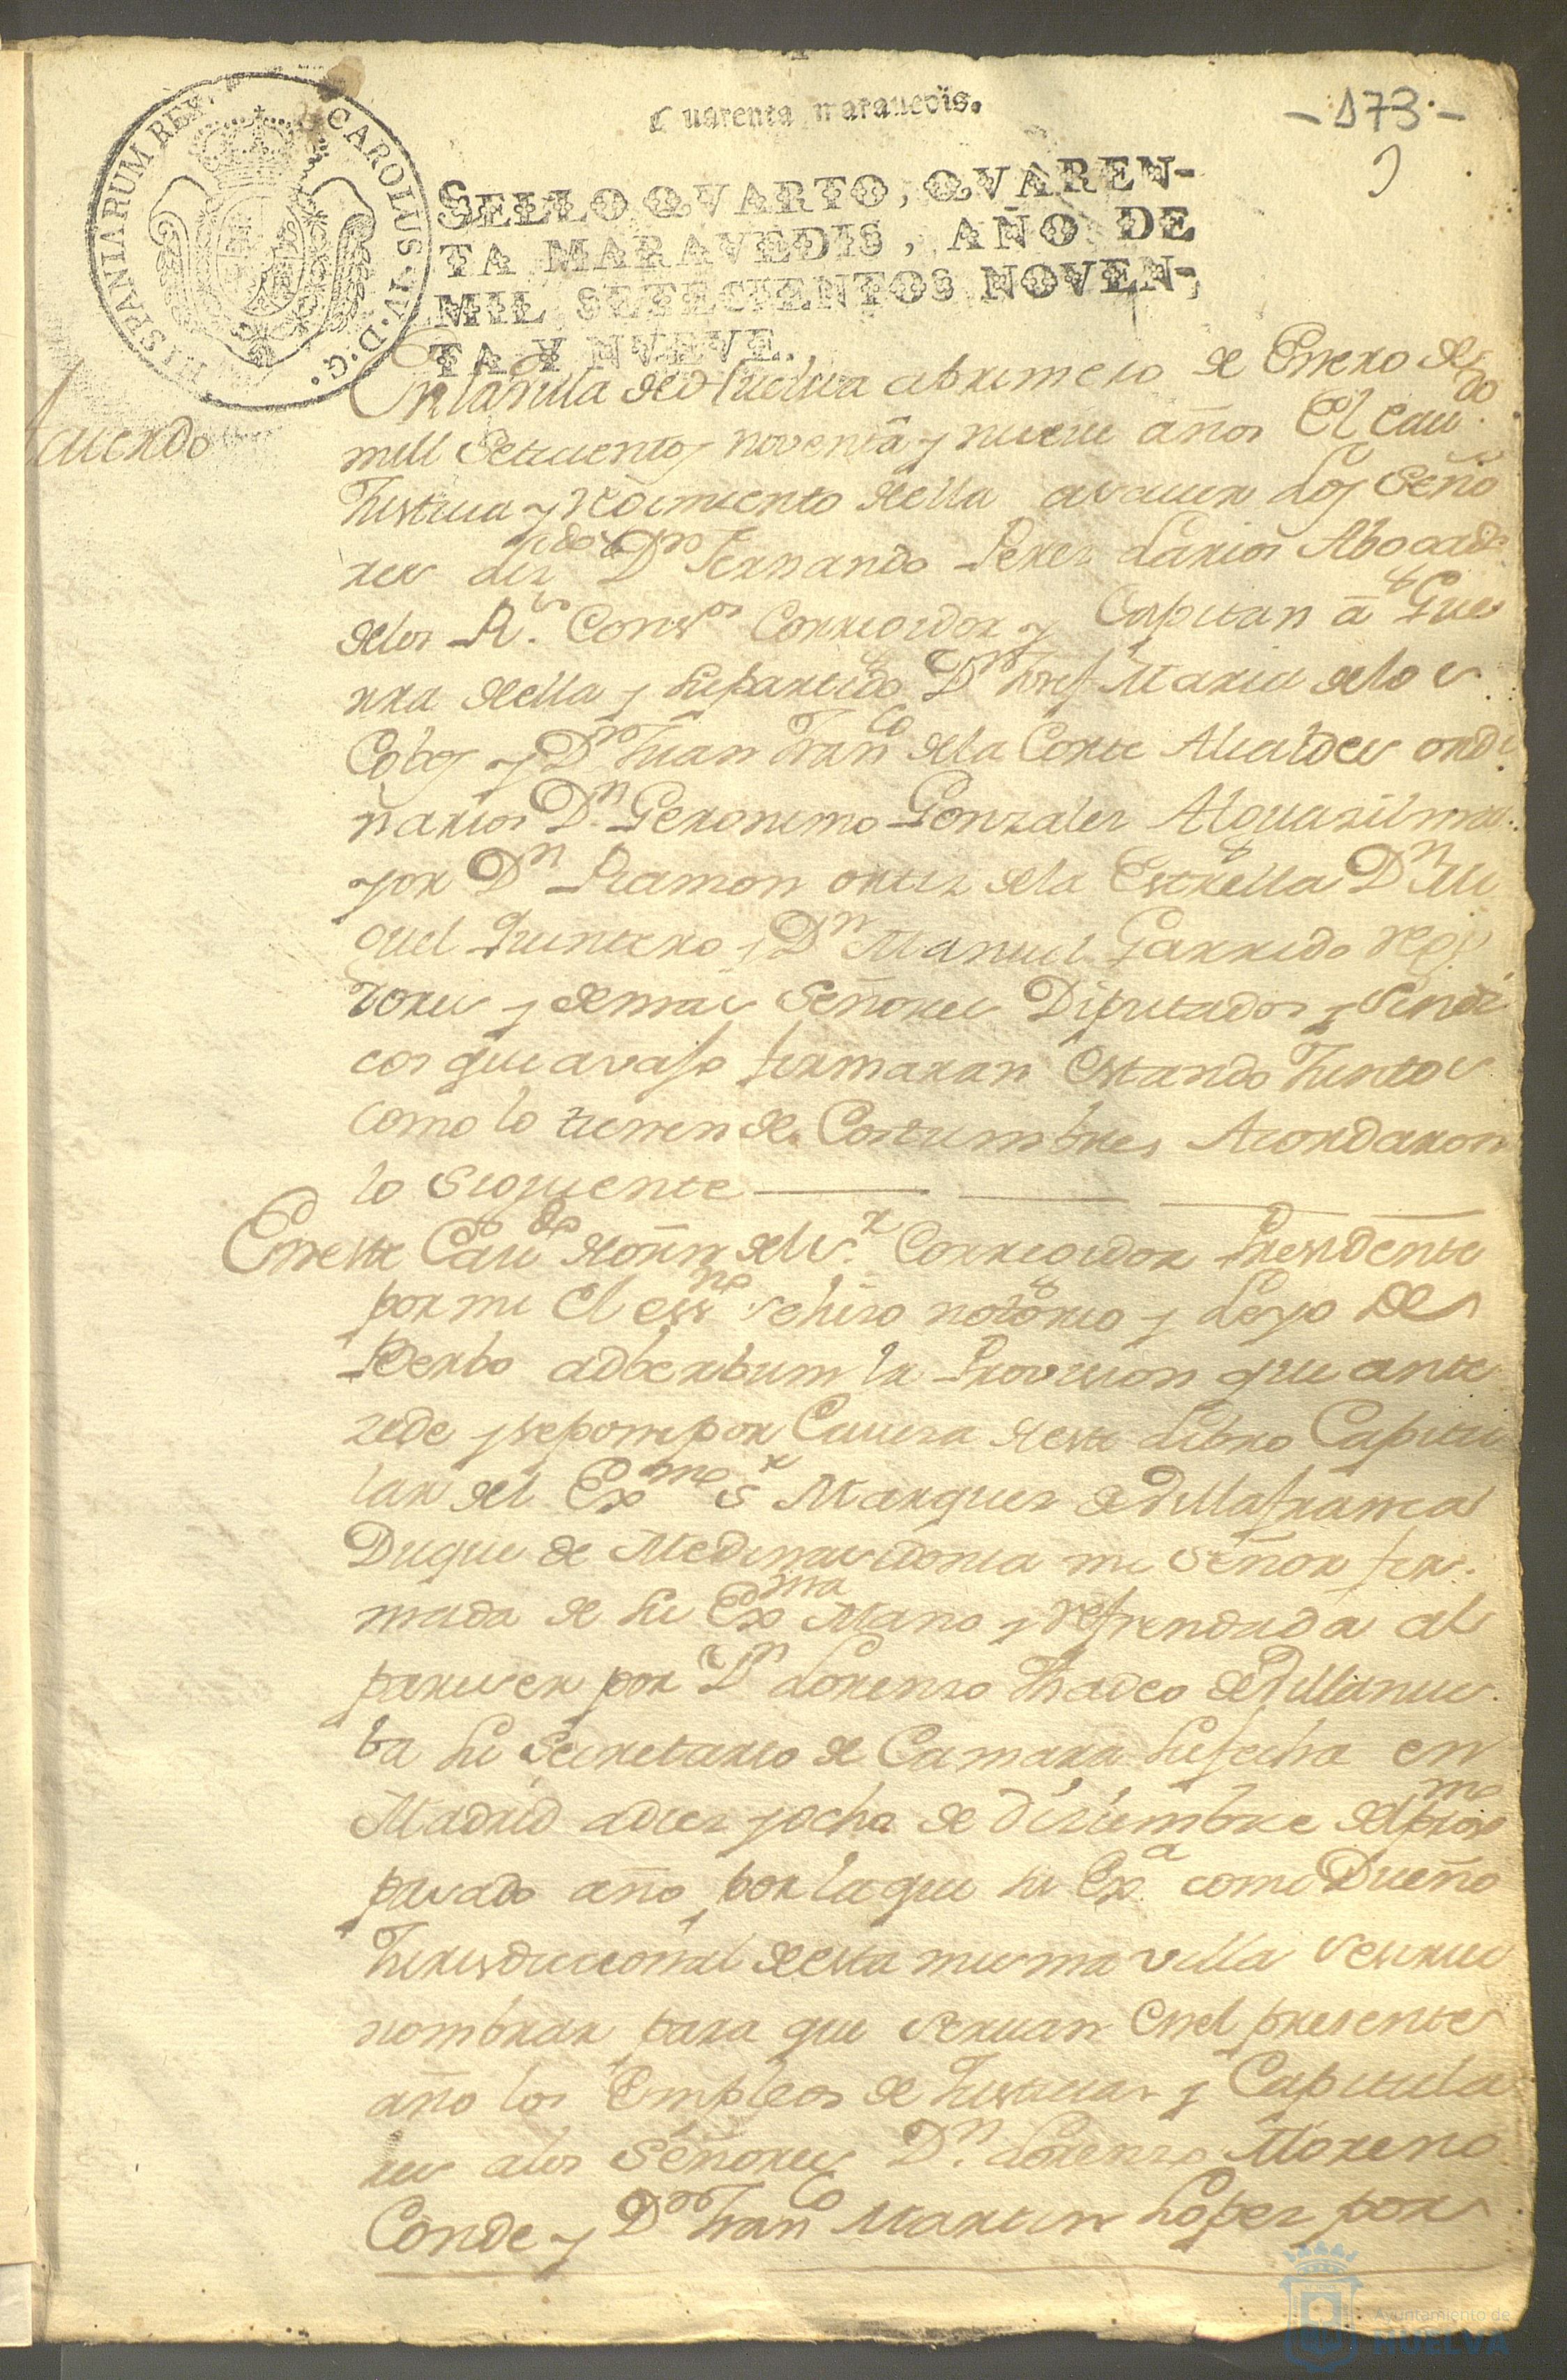 Cuarenta maravedis.
- 173 -
HISPANIARUM REX. CAROLUS. IV. D. G.
SELLO QVARTO, QVAREN-
TA MARAVEDIS, AÑO DE
MIL SETECIENTOS NOVEN-
TA Y NVEVE.
Acuerdo
En la villa de Huelva a primero de Enero de
mill Setecientos noventa y nueve años El Caudo
Justicia y regimiento de ella a vaver los Seño
res Dn Fernando Perez Larios Abogado
de los Rs Consos Corregidor y Capitan â Gue
rra de ella y su partido Dn Josef Maria de los
Cobos y Dn Juan Franco de la Corte Alcaldes ordi
narios Dn Geronimo Gonzalez Alguasil ma
yor Dn Ramon ortiz de la Estrella Dn Mi
guel Quintero y Dn Manuel Garrido regi
dores y demas Señores Diputados y Sindi
cos que avajo firmaran estando Juntos
como lo tienen de Costumbres Acordaron
lo siguiente
En este Caudo de orñ del Sr Corregidor Presidente
por mi el essno se hiso notorio y Leyo de
Verbo adberbum la Provision que ante
zede y se pone por Cavesa de este Libro Capitu
lar del Exmo Sr Marques de Villafranca
Duque de Medinasidonia mi Señor fir
mada de su Exma Mano y refrendada al
pareser por Dn Lorenso Thadeo de Villanue
ba su Secretario de Camara su fecha en
Madrid a diez y ocho de Disiembre del proxmo
pasado año, por la que su Exa como Dueño
Jurisdiccional de esta misma villa se sirue
nombrar para que siruan en el presente
año los Empleos de Justicias y Capitula
res a los Señores Dn Lorenso Moreno
Conde y Dn Franco Martin Lopez por
Ayuntamiento de
HUELVA